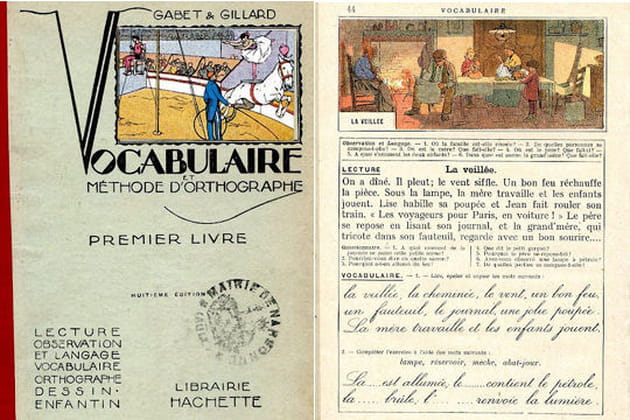 GABET & GILLARD
VOCABULAIRE
ET
MÉTHODE D'ORTHOGRAPHE
PREMIER LIVRE
HUITIÈME ÉDITION
MAIRIE DE NAR
LECTURE
OBSERVATION
ET LANGAGE
VOCABULAIRE
ORTHOGRAPHE
DESSIN
ENFANTIN
LIBRAIRIE
HACHETTE
44
VOCABULAIRE
LA VEILLÉE
Observation et Langage. — 1. Où la famille est-elle réunie? — 2. De quelles personnes se
compose-t-elle? — 3. Où est la mère? Que fait-elle? — 4. Où est le père? Que fait-il? —
5. A quoi s'amusent les deux enfants? — 6. Dans quoi est assise la grand'mère? Que fait-elle?
LECTURE
La veillée.
On a dîné. Il pleut; le vent siffle. Un bon feu réchauffe
la pièce. Sous la lampe, la mère travaille et les enfants
jouent. Lise habille sa poupée et Jean fait rouler son
train. « Les voyageurs pour Paris, en voiture! » Le père
se repose en lisant son journal, et la grand'mère, qui
tricote dans son fauteuil, regarde avec un bon sourire....
Questionnaire. — 1. A quel moment de la
journée se passe cette petite scène?
2. Pourriez-vous dire en quelle saison?
3. Pourquoi a-t-on allumé du feu?
4. Que dit le petit garçon?
5. Pourquoi le père se repose-t-il?
6. Avez-vous observé une lampe à pétrole?
7. De quelles parties se compose-t-elle?
VOCABULAIRE. — 1. — Lire, épeler et copier les mots suivants :
la veillée, la cheminée, le vent, un bon feu,
un fauteuil, le journal, une jolie poupée.
La mère travaille et les enfants jouent.
2. — Compléter l'exercice à l'aide des mots suivants :
lampe, réservoir, mèche, abat-jour.
La .... est allumée, le .... contient le pétrole,
la .... brûle, l' .... renvoie la lumière.